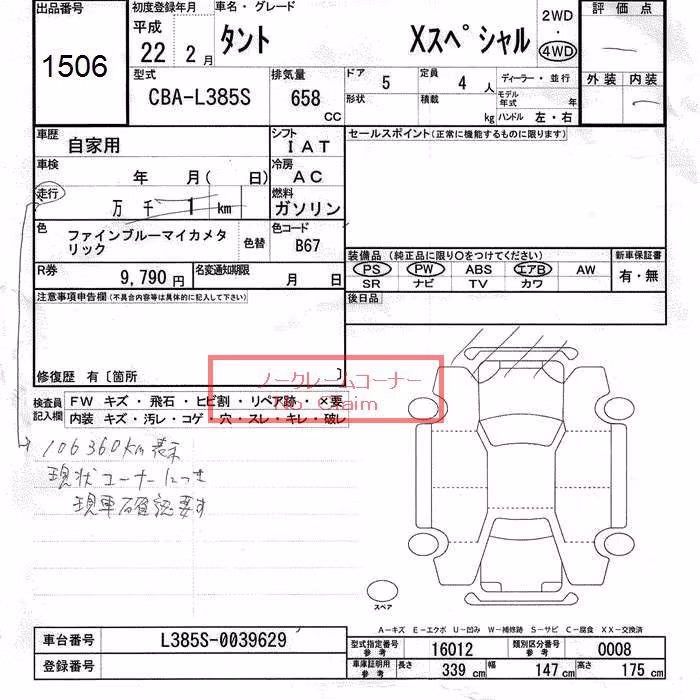 出品番号
1506
初度登録年月
平成
22 年 2 月
車名・グレード
タント Xスペシャル
2WD
・
4WD
評 価 点
外 装 内 装
型式
CBA-L385S
排気量
658
CC
ドア 5
形状
定員 4 人
積載 kg
ディーラー・並行
モデル
年式 年
ハンドル 左・右
車歴 自家用
シフト IAT
車検 年 月( 日)
冷房 AC
走行 万 千 1 km
燃料
ガソリン
色
ファインブルーマイカメタ
リック
色替
色コード
B67
R券 9,790 円
名変通知期限 月 日
セールスポイント(正常に機能するものに限ります)
装備品(純正品に限り〇をつけてください)
PS PW ABS エアB AW
SR ナビ TV カワ
新車保証書
有・無
後日品
注意事項申告欄(不具合内容等は具体的に記入して下さい)
修復歴 有〔箇所 〕
ノークレームコーナー
No Claim
検査員
記入欄
FW キズ・飛石・ヒビ割・リペア跡・×要
内装 キズ・汚レ・コゲ・穴・スレ・キレ・破レ
106360km表示
現状コーナーにつき
現車確認要す
スペア
A-キズ E-エクボ U-凹み W-補修跡 S-サビ C-腐食 XX-交換済
車台番号 L385S-0039629
登録番号
型式指定番号
参考
16012
類別区分番号
参考
0008
車庫証明用
参考
長さ 339 cm 幅 147 cm 高さ 175 cm